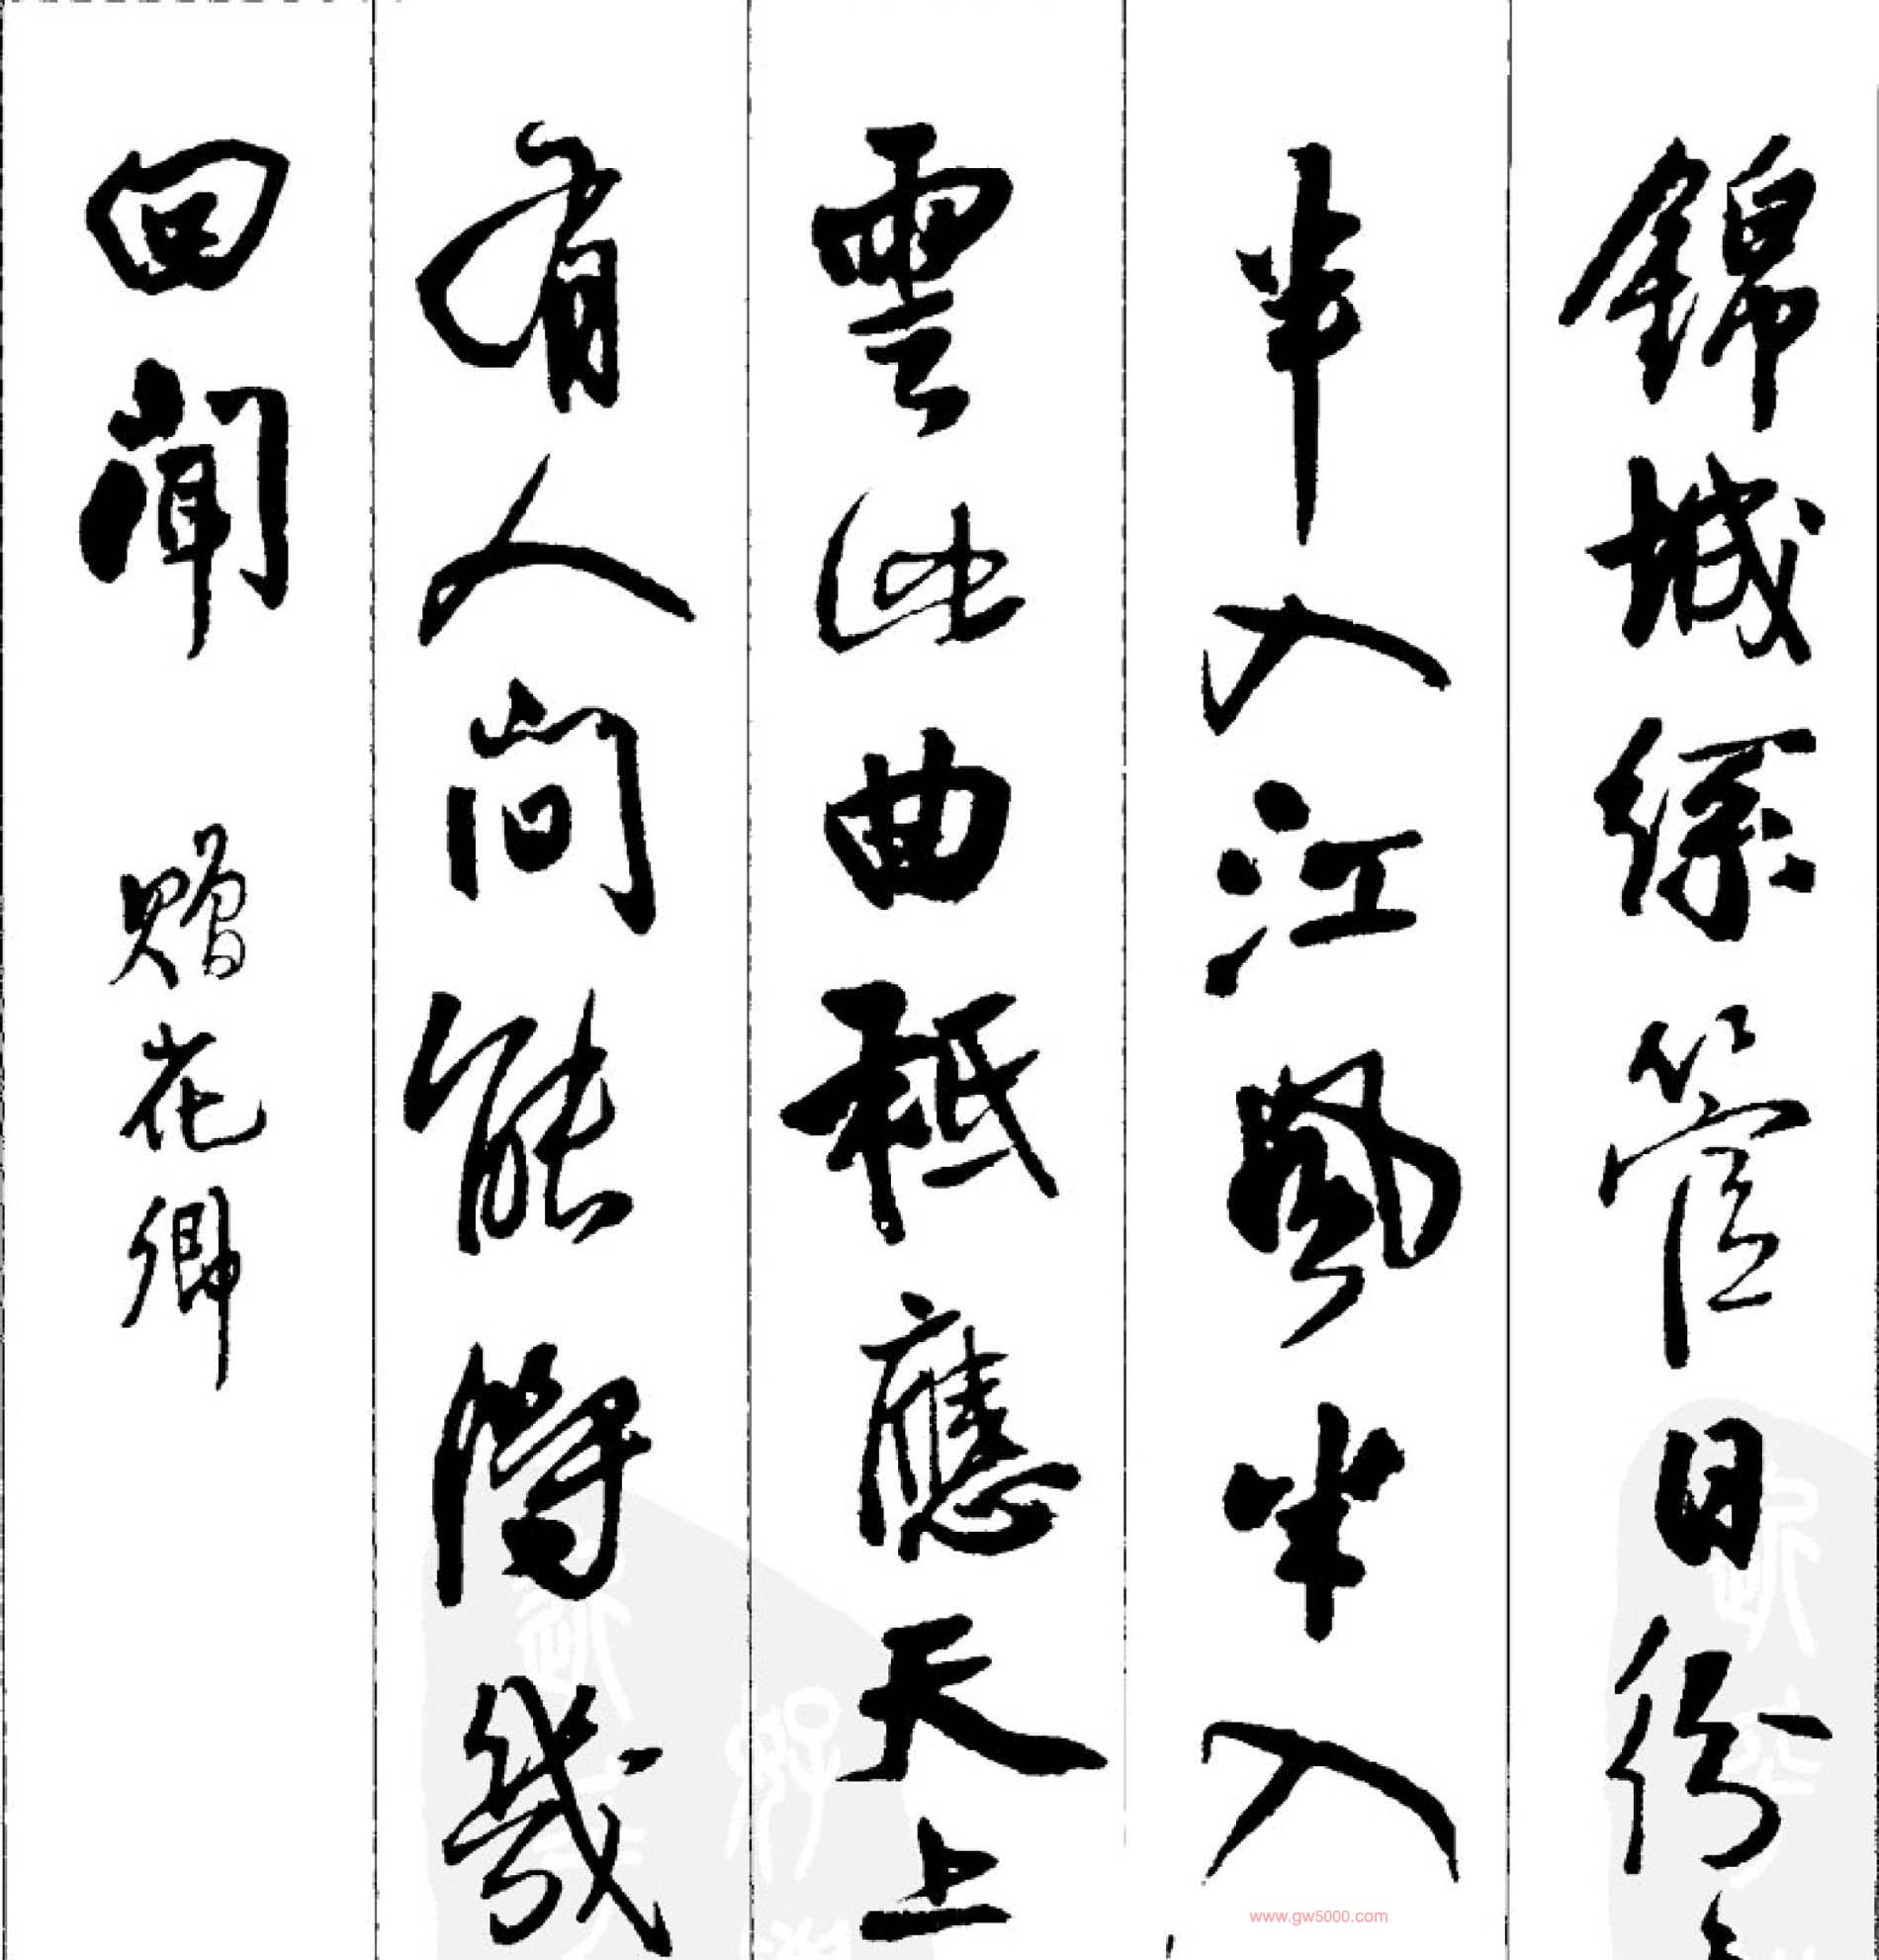 錦城絲管日紛
半入江風半入
雲此曲秖應天上
有人間能得幾
回聞 贈花卿
www.gw5000.com